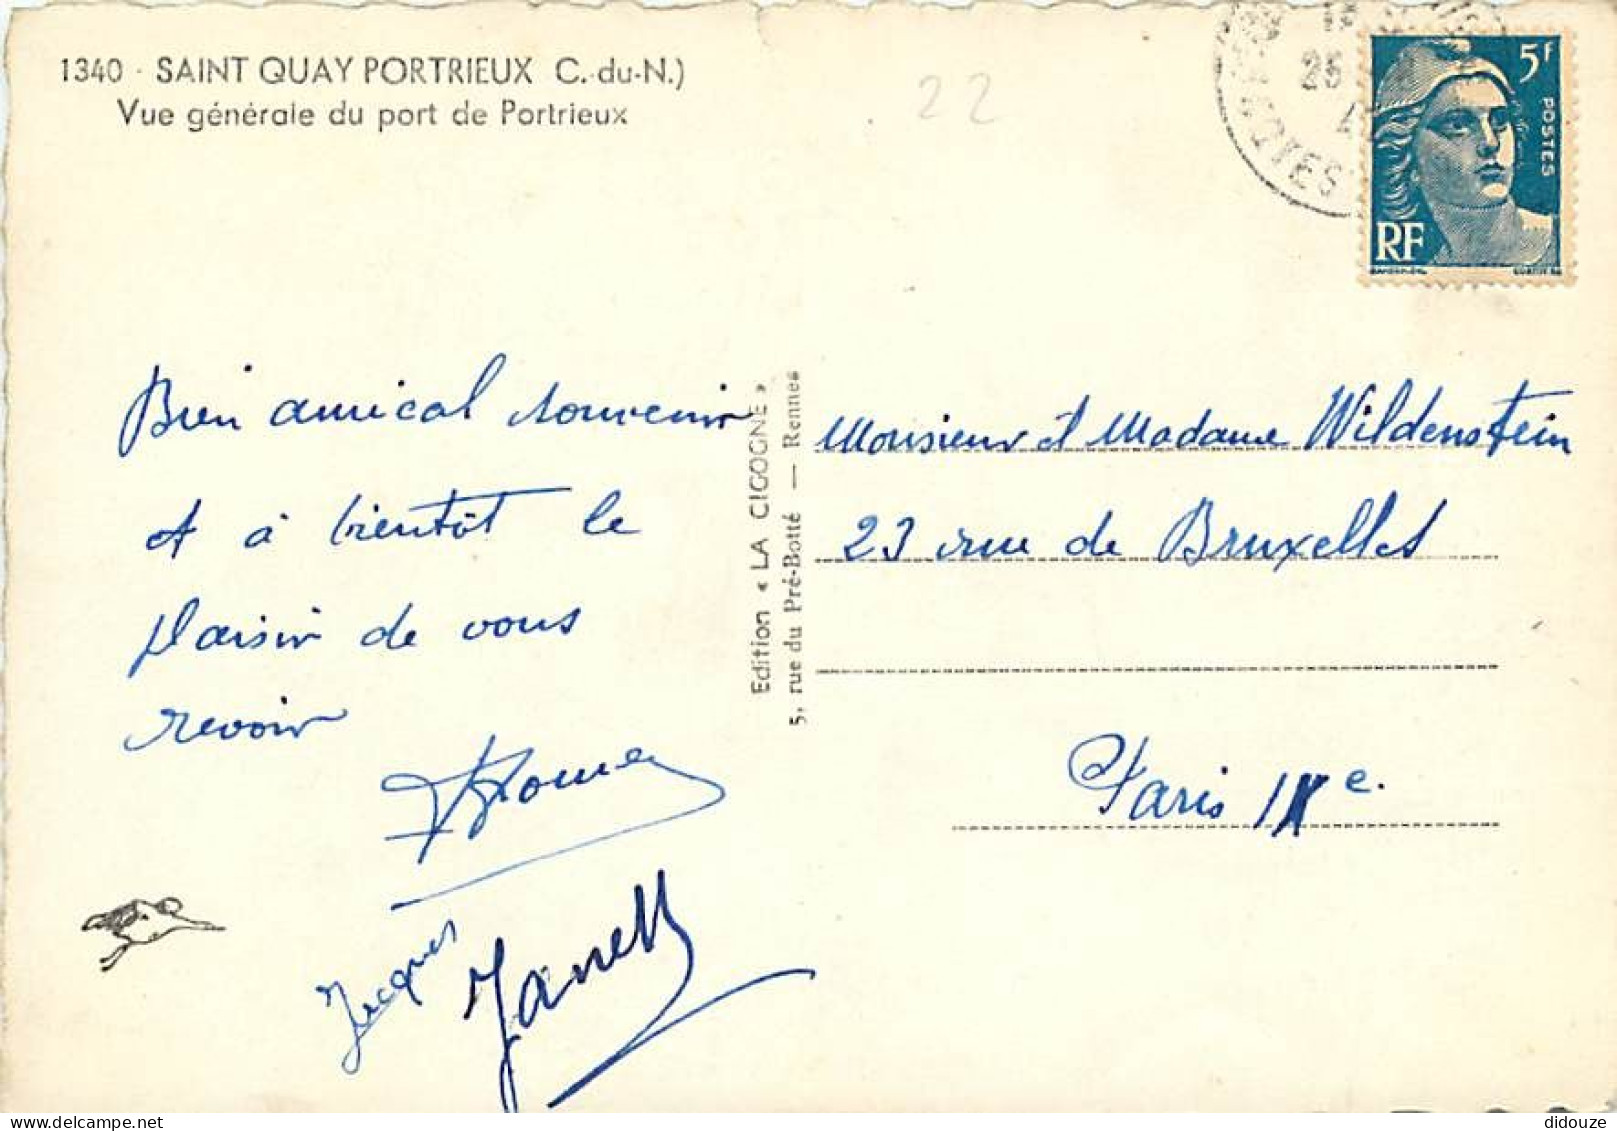 1340 - SAINT QUAY PORTRIEUX C.-du-N.)
Vue générale du port de Portrieux
22
25
CÔTES
5F
POSTES
RF
GANDON
Bien amical souvenir
et à bientôt le
plaisir de vous
revoir
Jacques
Janett
Edition « LA CIGOGNE »
5, rue du Pré-Botté — Rennes
Monsieur et Madame Wildenstein
23 rue de Bruxelles
Paris IXe.
didouze